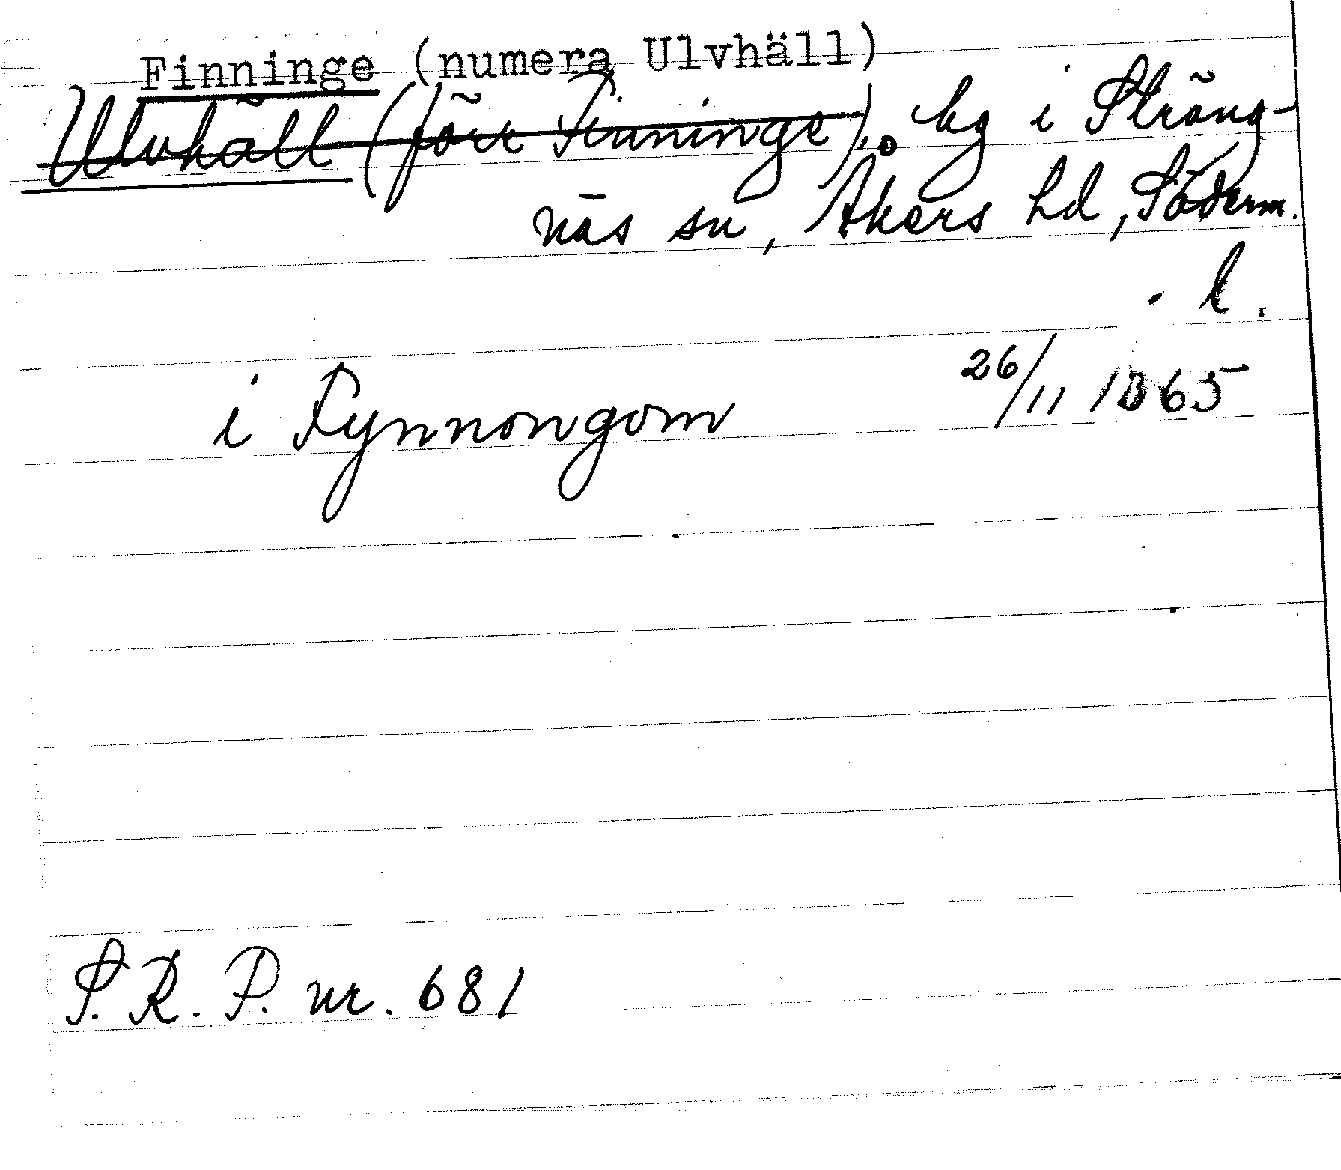 Finninge (numera Ulvhäll)
Ulvhäll (förr Finninge), hg i Sträng-
näs sn, Åkers hd, Söderm.
l.
i Fynnongom 26/11 1365
S.R.P. nr. 681